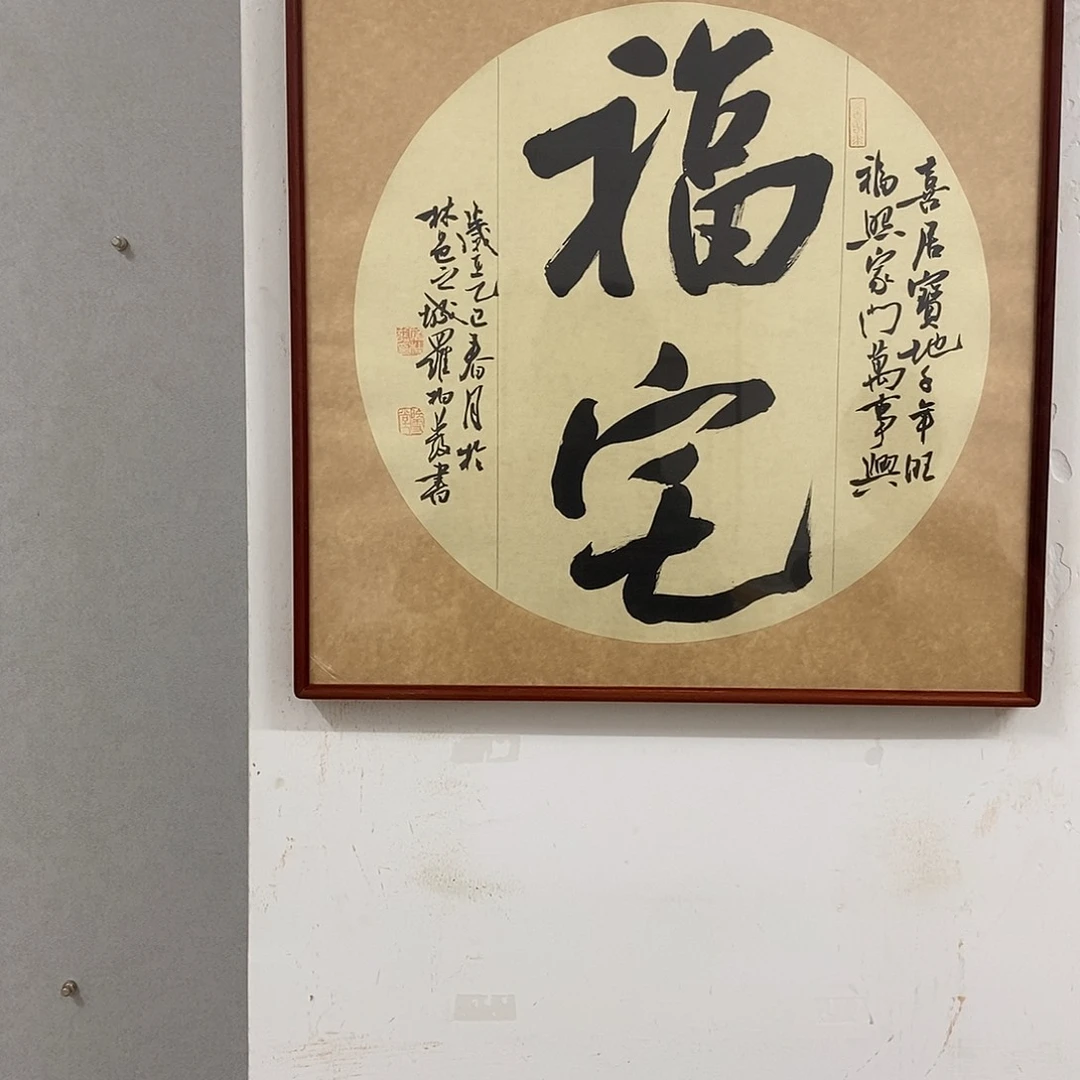 福宅
喜居寶地千年旺
福照家門萬事興
歲在乙巳春月於
林邑之城羅書